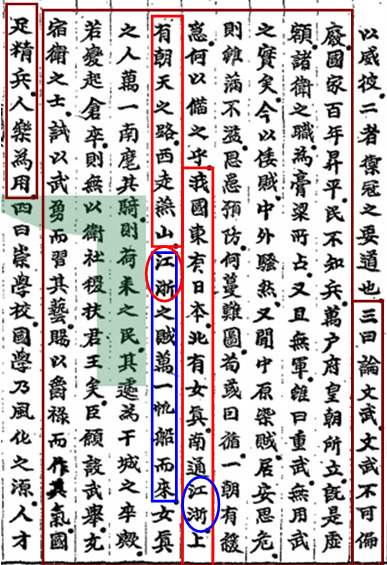 以威彼二者禦寇之要道也三曰論文武文武不可偏
廢國家百年昇平民不知兵萬户府皇朝所立旣是虛
額諸衛之職爲膏粱所占又且無軍雖曰重武無用武
之實矣今以倭賊中外騷然又聞中原寇賊居安思危
則雖滿不溢思患預防何蔓難圖苟或因循一朝有緩
急何以備之乎我國東有日本北有女眞南通江浙止
有朝天之路西走燕山江浙之賊萬一帆船而來女眞
之人萬一南麾其騎則荷耒之民其遽爲干城之卒歟
若變起倉卒則無以衛社稷扶君王矣臣願設武擧充
宿衛之士試以武勇而習其藝賜以爵祿而作其氣國
足精兵人樂爲用四曰崇學校國學乃風化之源人才